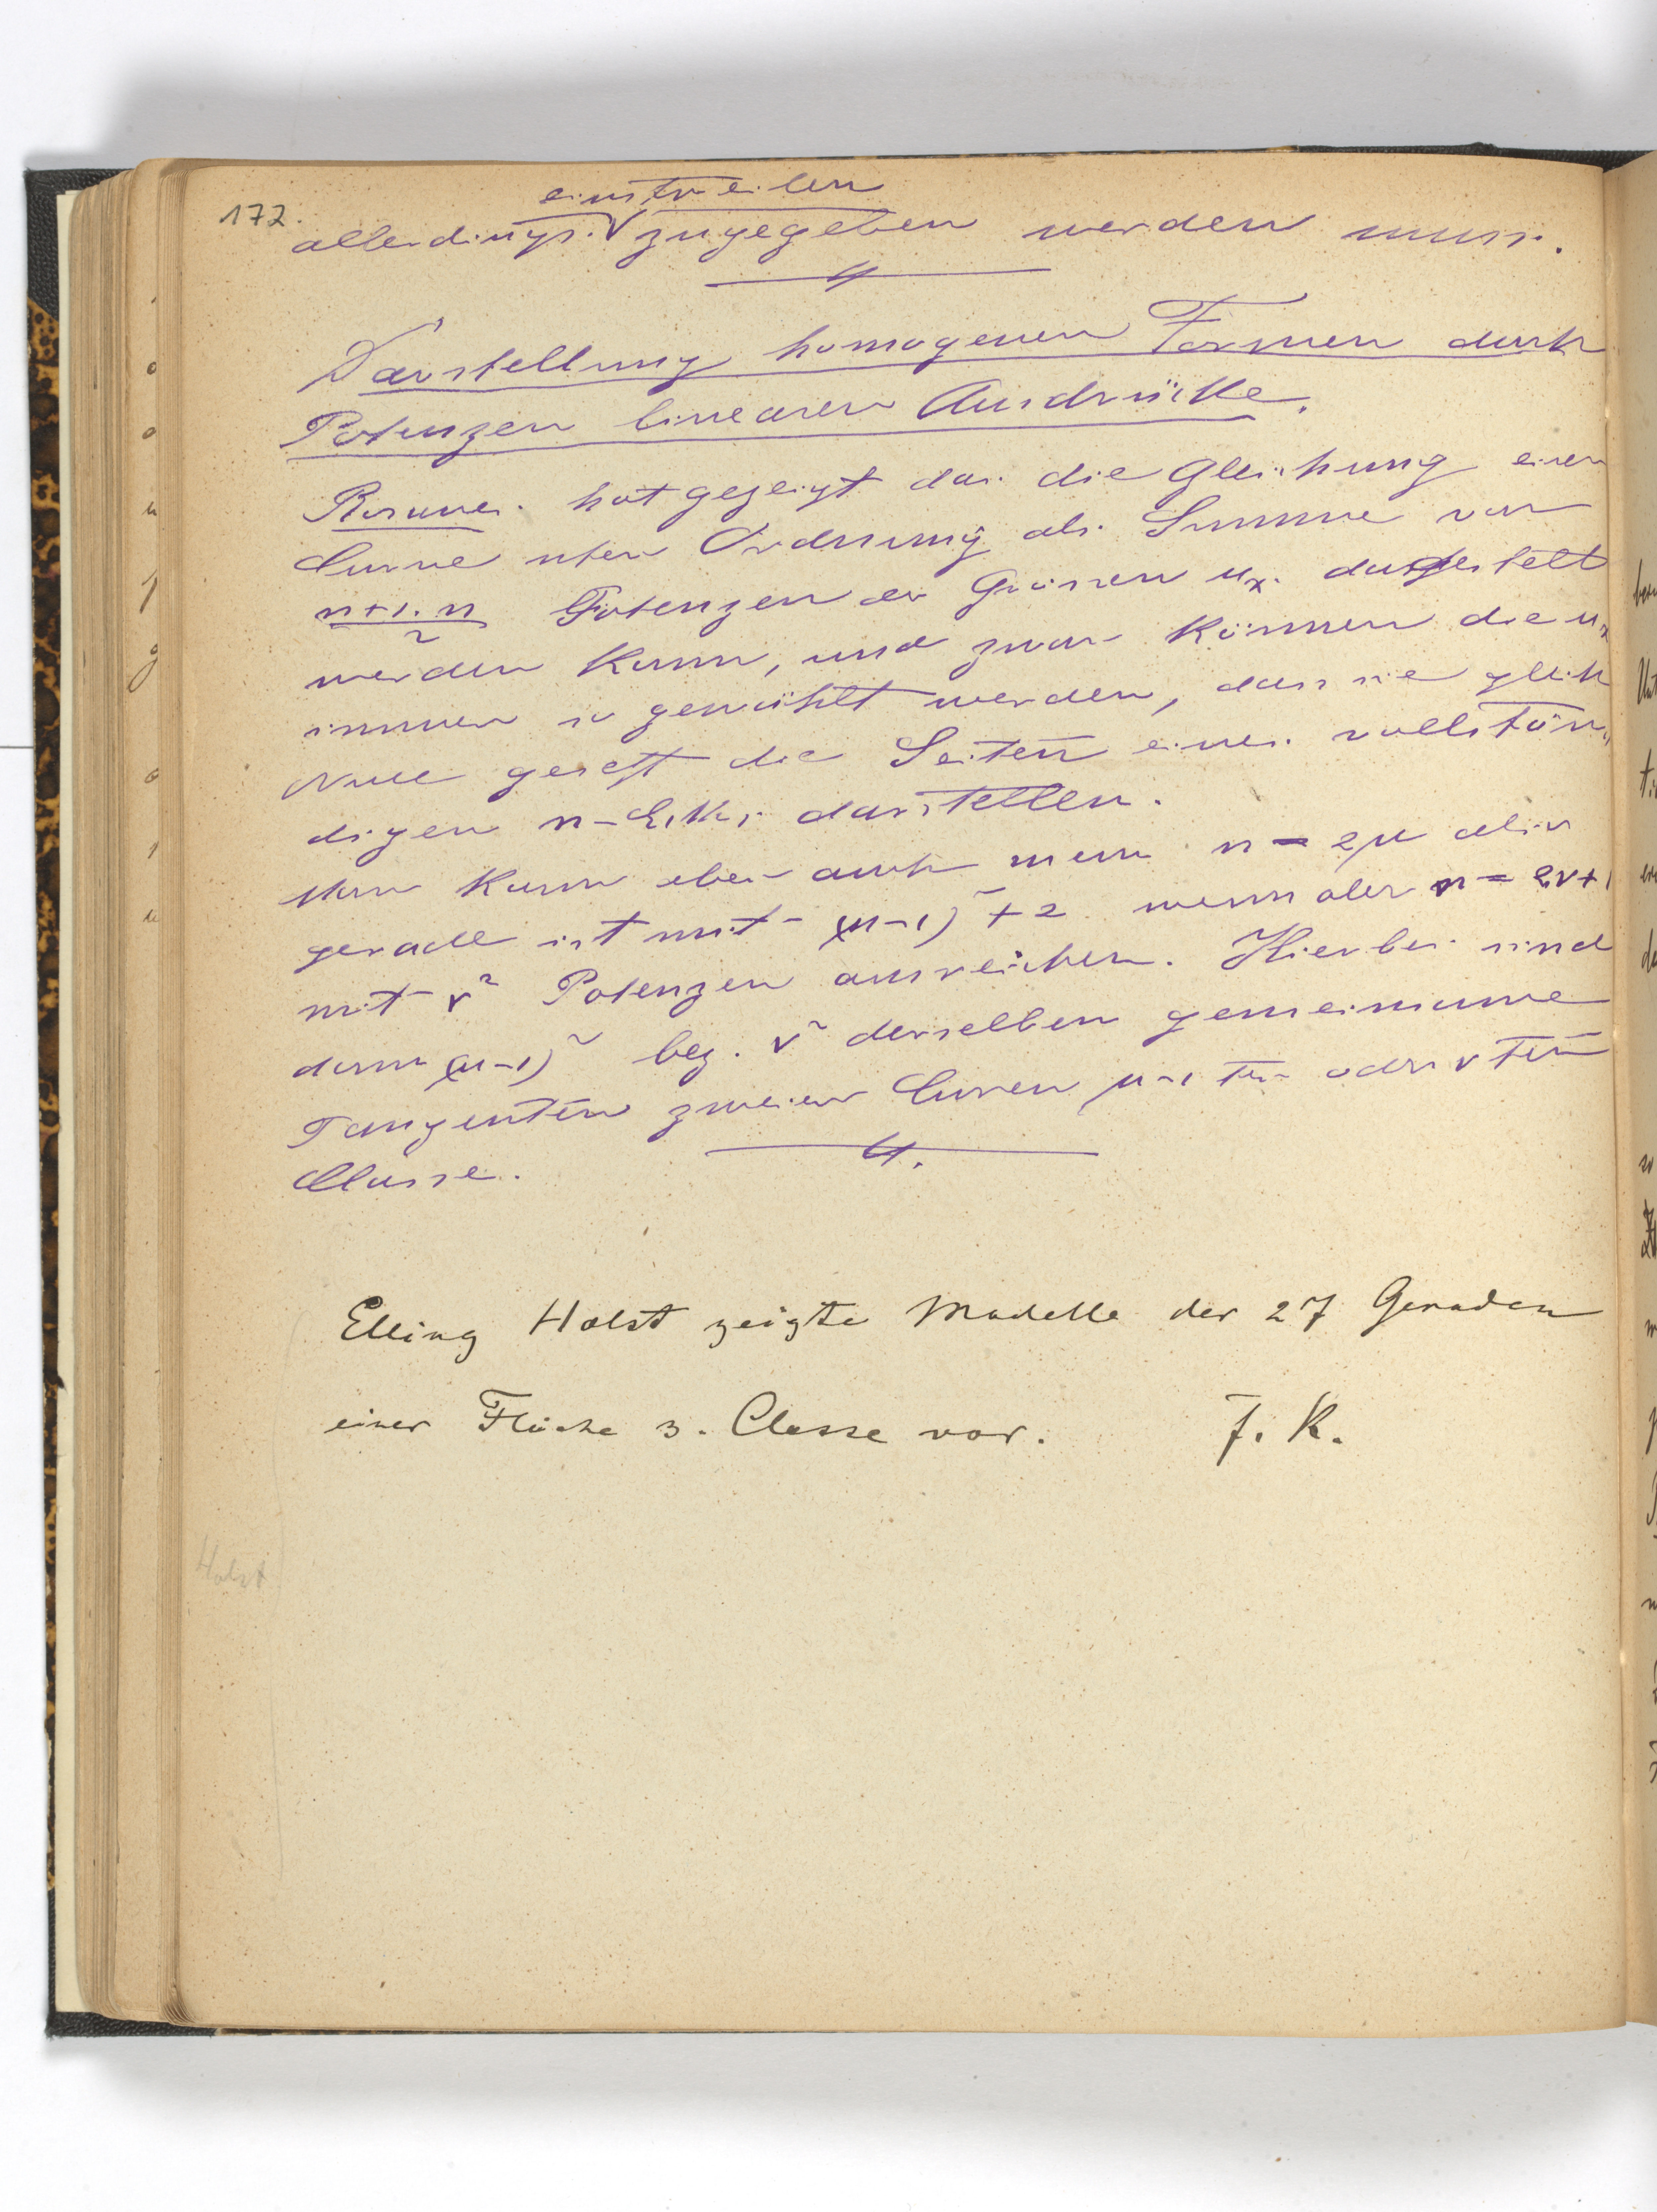 172.
einstweilen
allerdings zugegeben werden muss.
Darstellung homogener Formen durch
Potenzen linearer Ausdrücke.
Rosanes hat gezeigt das die Gleichung einer
Curve nter Ordnung als Summe von
n+1.n/2 Potenzen der Grössen ux dargestellt
werden kann, und zwar können die ux
immer so gewählt werden, dass sie gleich
Null gesetzt die Seiten eines vollstän-
digen n-Ecks darstellen.
Man kann aber auch wenn n = 2μ also
gerade ist mit (μ-1)² + 2 wenn aber n = 2ν+1
mit ν² Potenzen ausreichen. Hierbei sind
dann (μ-1)² bez. ν² derselben gemeinsame
Tangenten zweier Curven μ-1 ter oder νter
Classe.
Elling Holst zeigte Modelle der 27 Geraden
einer Fläche 3. Classe vor. F. K.
Holst